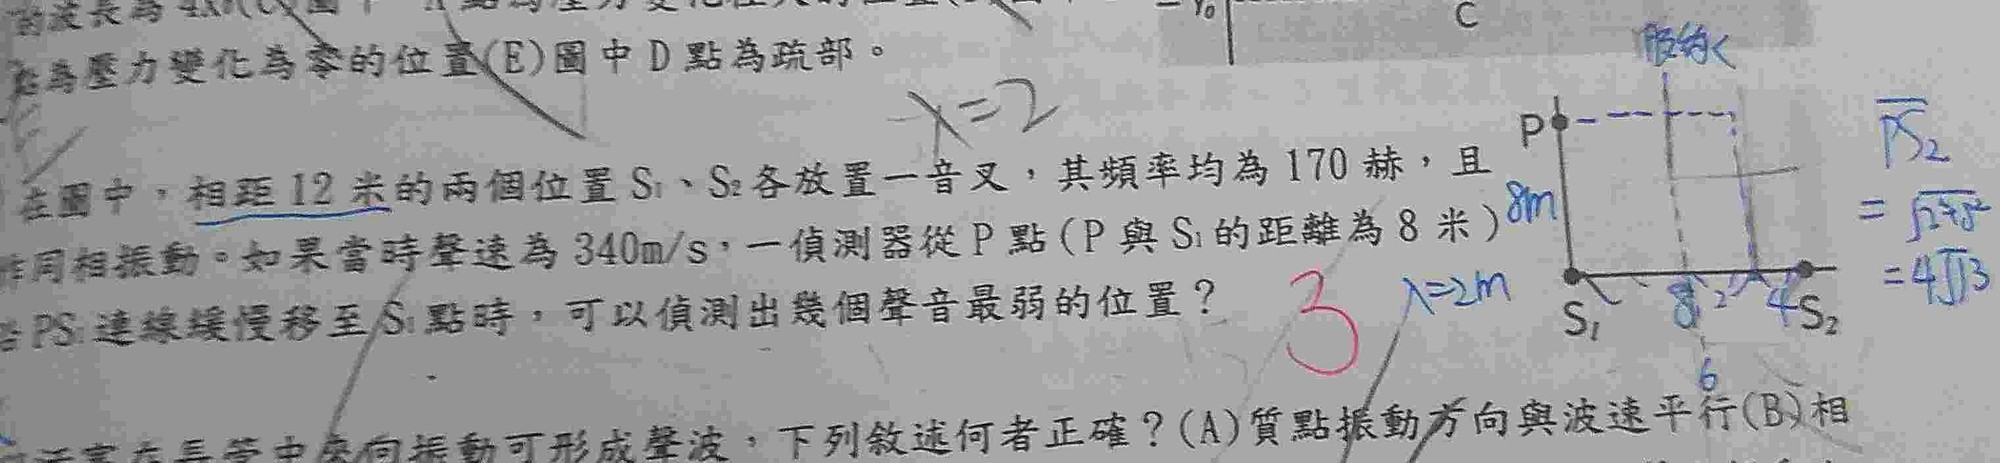 點為壓力變化為零的位置(E)圖中 D 點為疏部。
C
λ=2
在圖中，相距 12 米的兩個位置 S₁、S₂ 各放置一音叉，其頻率均為 170 赫，且
作同相振動。如果當時聲速為 340m/s，一偵測器從 P 點(P 與 S₁ 的距離為 8 米)
沿 PS₁ 連線緩慢移至 S₁ 點時，可以偵測出幾個聲音最弱的位置？
3
λ=2m
P
8m
S₁
8
2
4
S₂
6
PS₂
=4√13
下列敘述何者正確？(A)質點振動方向與波速平行(B)相